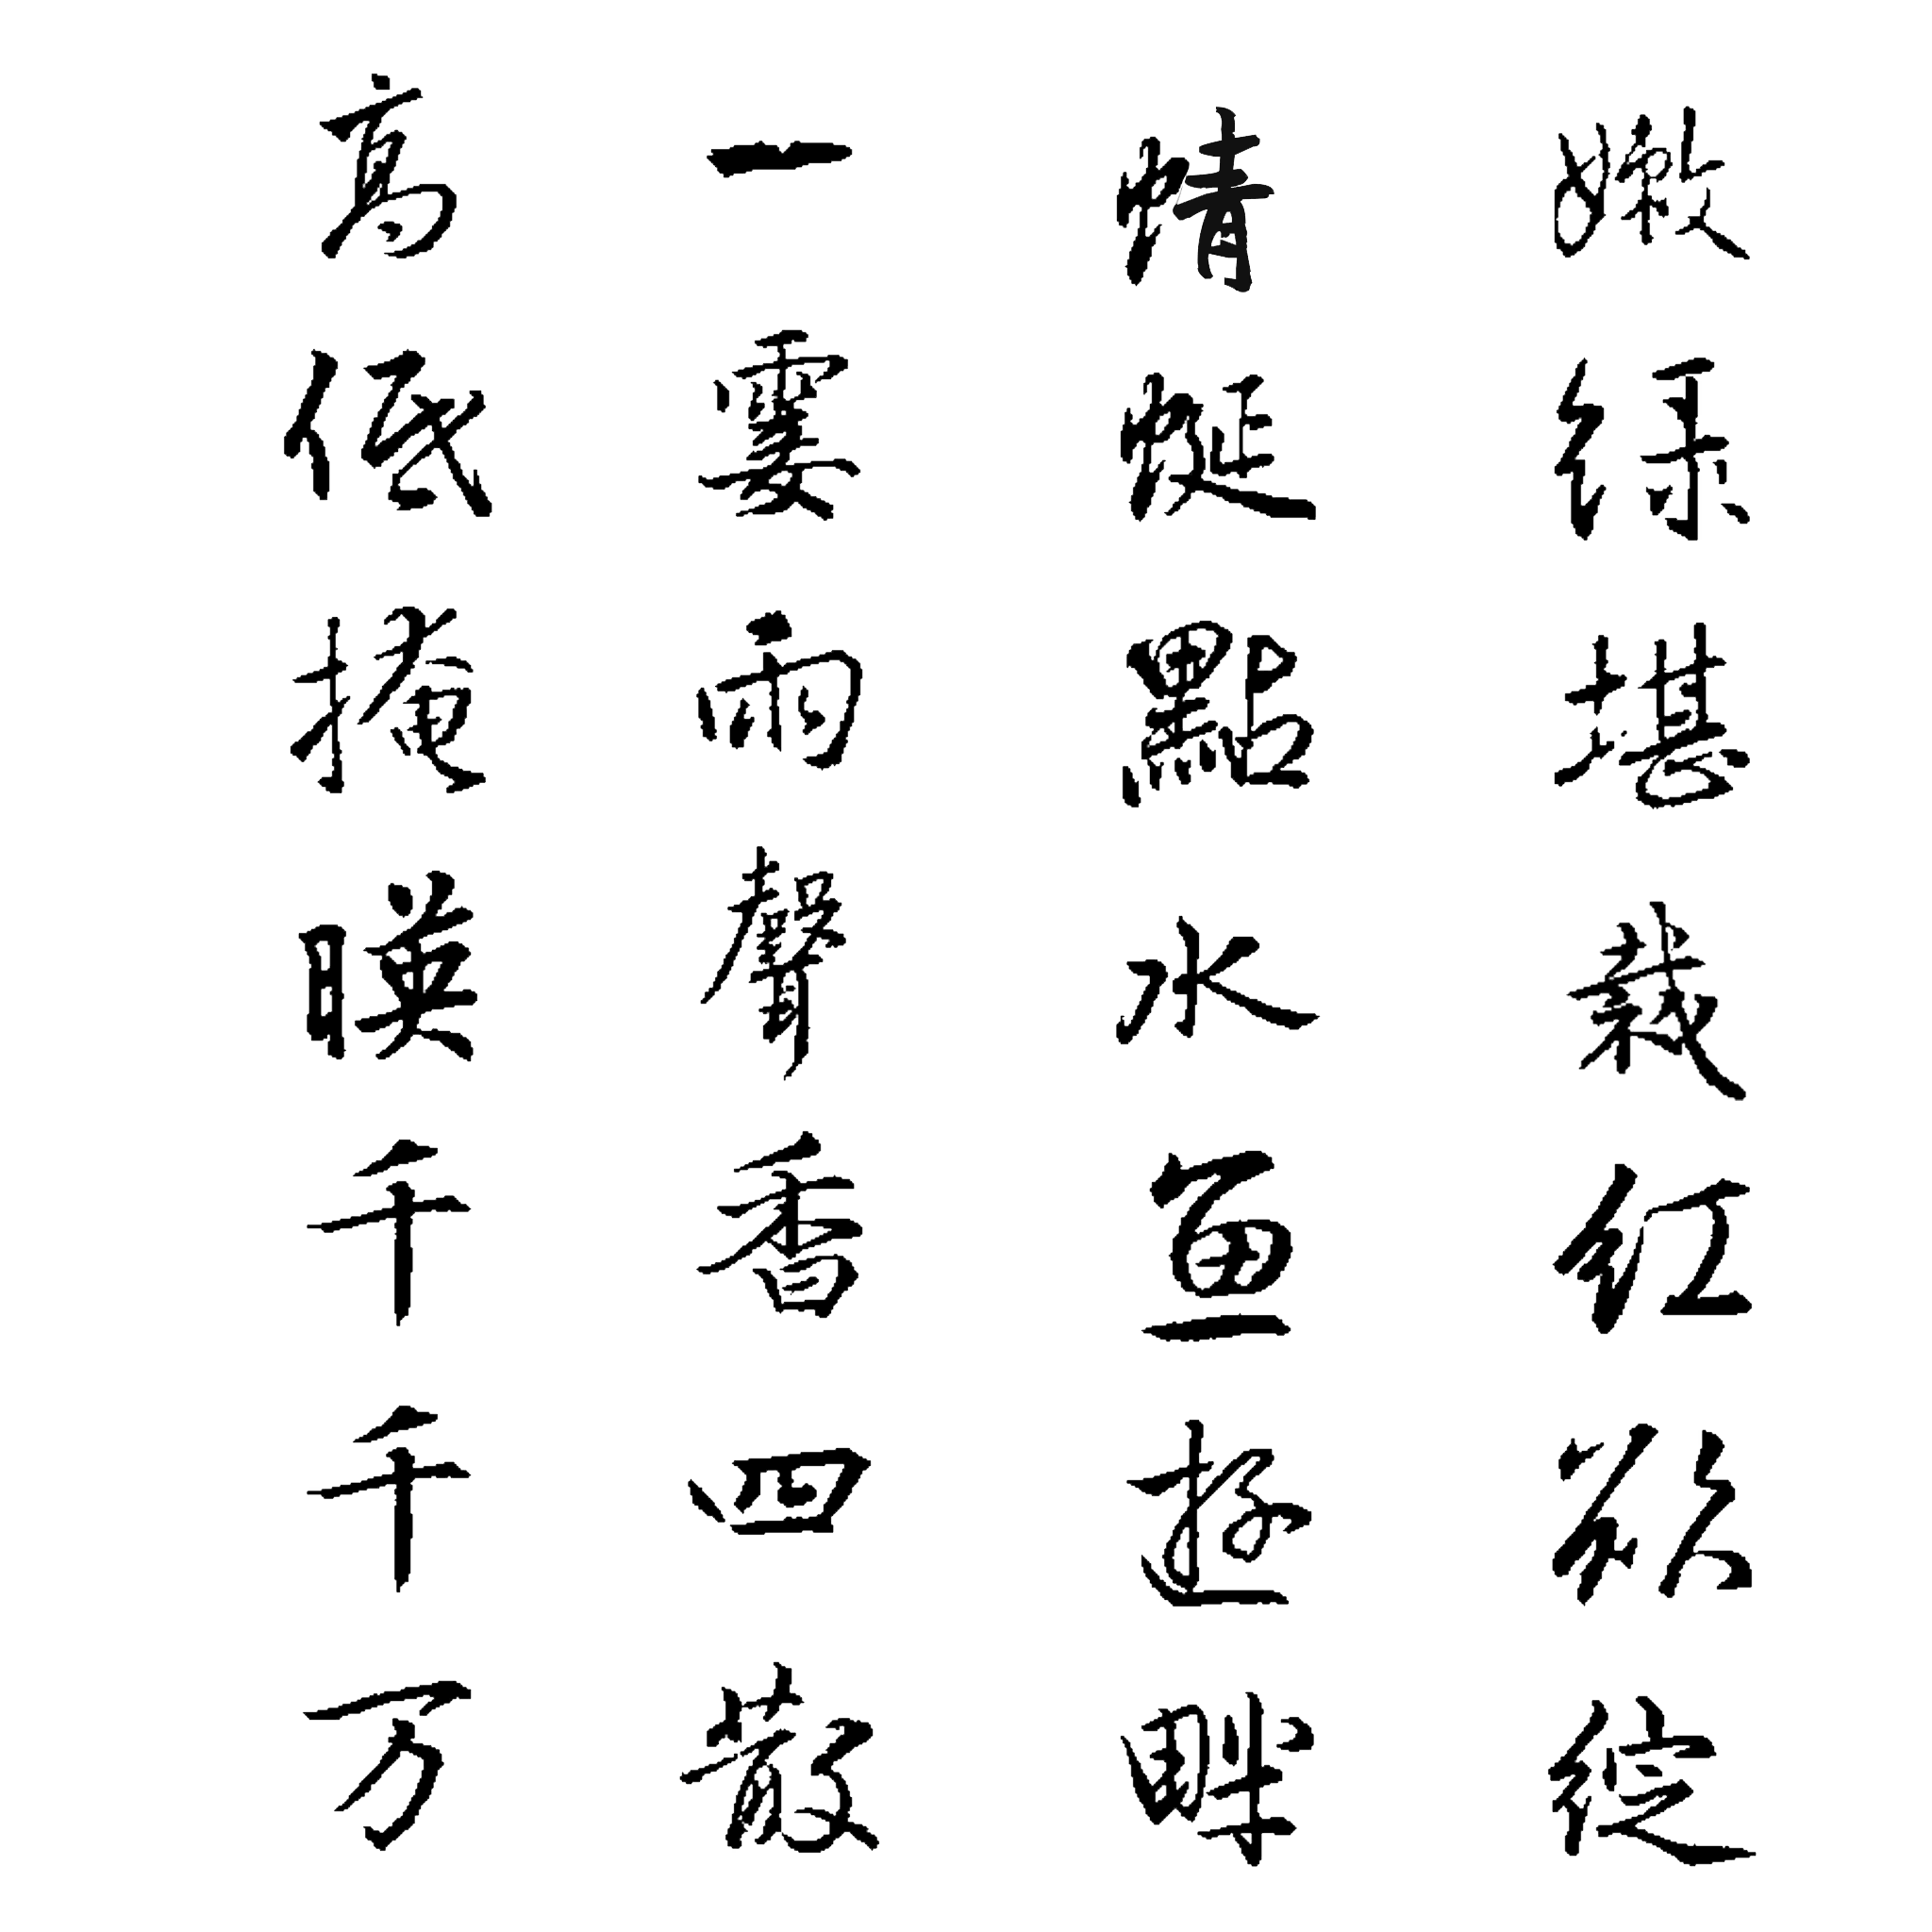 嫩绿堪裁红欲绽
蜻蜓點水鱼遊畔
一霎雨聲香四散
高低掩映千千万